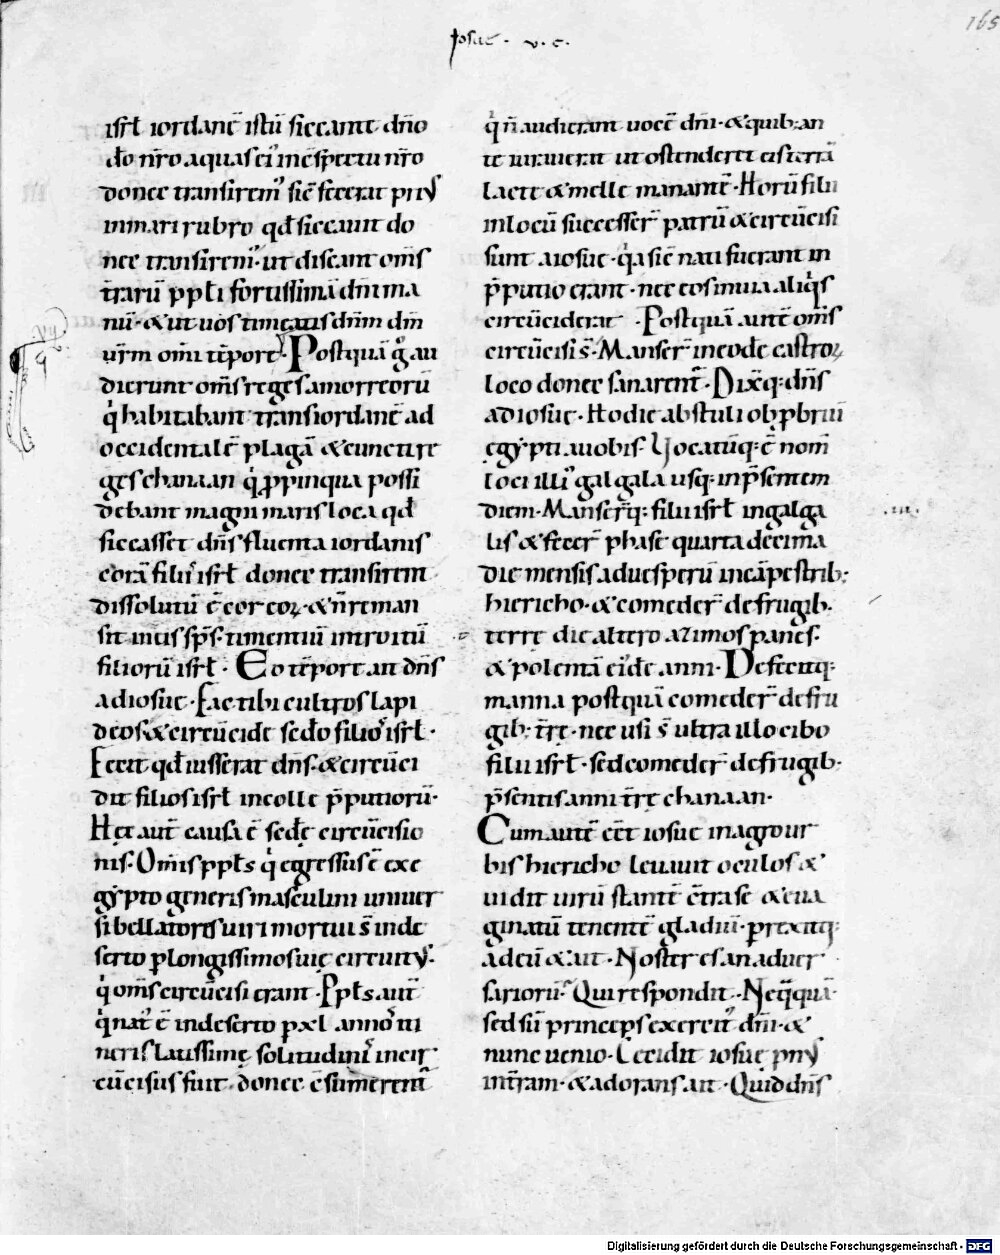 Iosue · v · c ·
165
isrl iordanē istū siccante dn̄o
do nr̄o aquas ei' in c̄spectu nr̄o
donec transirem' sic fecerat pri'
in mari rubro qđ siccauit do
nec transirem'· ut discant om̄s
tr̄arū ppl'i fortissimā dn̄i ma
nū · & ut uos timeatis dn̄m dm̄
ur̄m omi tēpore · Postquā g° au
dierunt om̄s reges amorreorū
q̇ habitabant trans iordanē ad
occidentalē plagā & cuncti re
ges chanaan q̇ ꝓpinqua possi
debant magni maris loca qđ
siccasset dn̄s fluenta iordanis
corā filiis isrl donec transirent
dissolutū ē cor eoꝝ · & n̄ reman
sit in eis sp̄s · timentiū introitū
filiorū isrl · Eo tēpore ait dn̄s
ad iosue · Fac tibi cultros lapi
deos & circūcide scdo filios isrl ·
Fecit qđ iusserat dn̄s · & circūci
dit filios isrl in colle p̄putiorū ·
Hęc aut̄ causa ē scdę circūcisio
nis · Om̄is ppl's q̇ egressus ē ex e
gypto generis masculini uniuer
si bellatores uiri mortui s̄ in de
serto ꝑ longissimos uię circuit' ·
q̇ om̄s circūcisi erant · Ppl's aut̄
q̇ nat' ē in deserto ꝑ xl annos iti
neris latissimę solitudinis incir
cūcisus fuit · donec c̄sumerent̄
q̇ n̄ audierant uocē dn̄i · & quib; an
te iurauerat ut ostenderet eis terrā
lacte & melle manantē · Horū filii
in locū successer̄ patrū & circūcisi
sunt a iosue · q̇a sic nati fuerant in
p̄putio erant · nec eos in uia aliq̇s
circūciderat · Postquā aut̄ om̄s
circūcisi s̄ · Manser̄ in eodē castroꝝ
loco donec sanarent̄ · Dixq; dn̄s
ad iosue · Hodie abstuli obꝓbriū
ęgypti a uobis · Vocatūq; ē nom̄
loci illi' galgala usq; in p̄sentem
diem · Manserq; filii isrl in galga
lis & fecer̄ phase quarta decima
die mensis ad uesperū in cāpestrib;
hiericho · & comeder̄ de frugib;
terre die altero azimos panes ·
& polentā ei'dē anni · Defecitq;
manna postquā comeder̄ de fru
gib; tr̄e · nec usi s̄ ultra illo cibo
filii isrl · sed comeder̄ de frugib;
p̄sentis anni tr̄ę chanaan ·
Cum autē eēt iosue in agro ur
bis hiericho leuauit oculos &
uidit uirū stantē c̄tra se & eua
ginatū tenentē gladiū · ꝑrexitq;
ad eū & ait · Noster es an aduer
sariorū · Qui respondit · Neq̄quā ·
sed sū princeps exercit' dn̄i · &
nunc uenio · Cecidit iosue pn'
in tr̄am · & adorans ait · Quid dn̄s
Digitalisierung gefördert durch die Deutsche Forschungsgemeinschaft - DFG